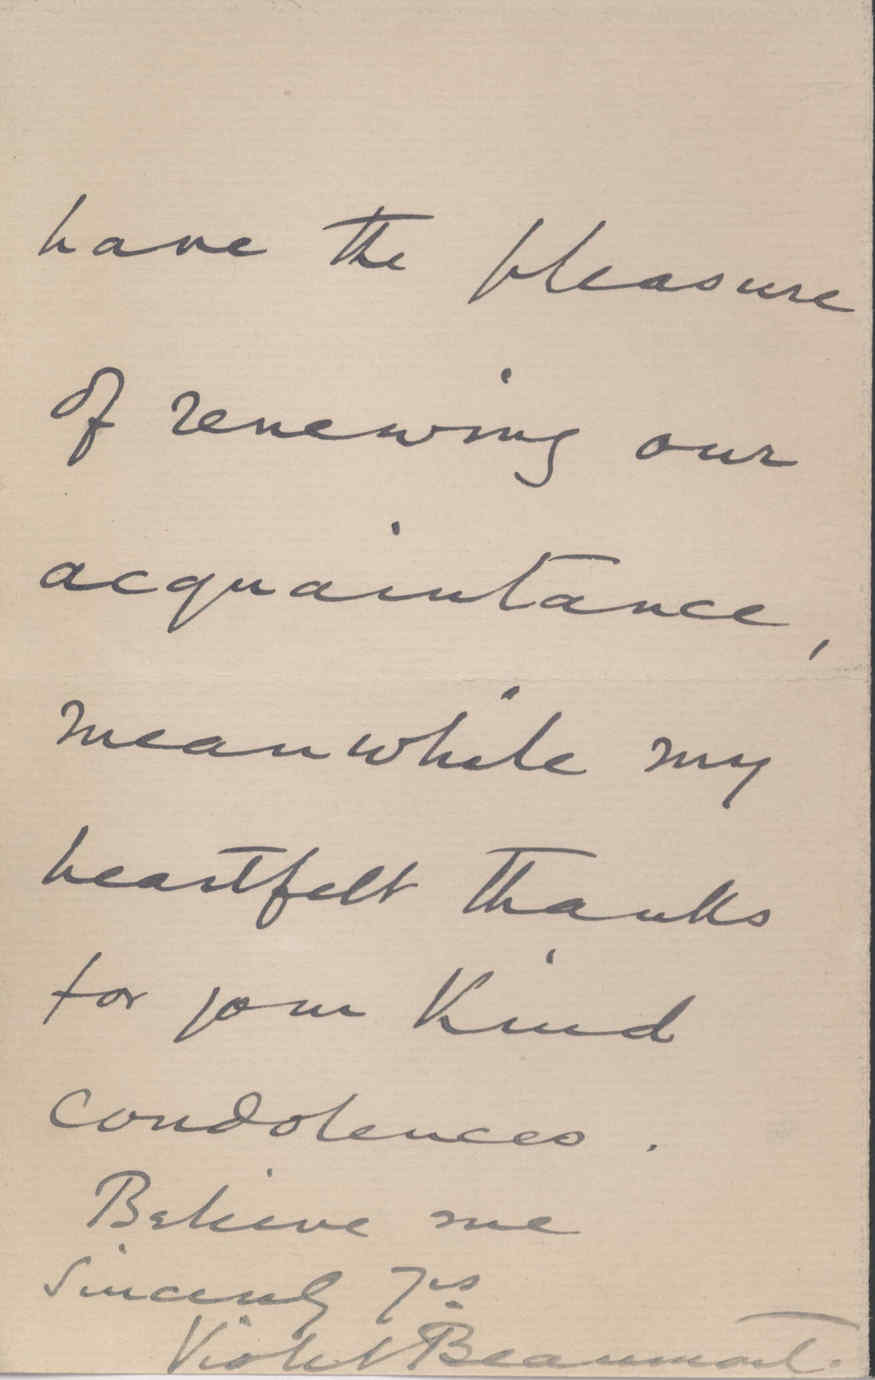 have the pleasure
of renewing our
acquaintance,
meanwhile my
heartfelt thanks
for your kind
condolences.
Believe me
Sincerely yrs
Violet Beaumont.